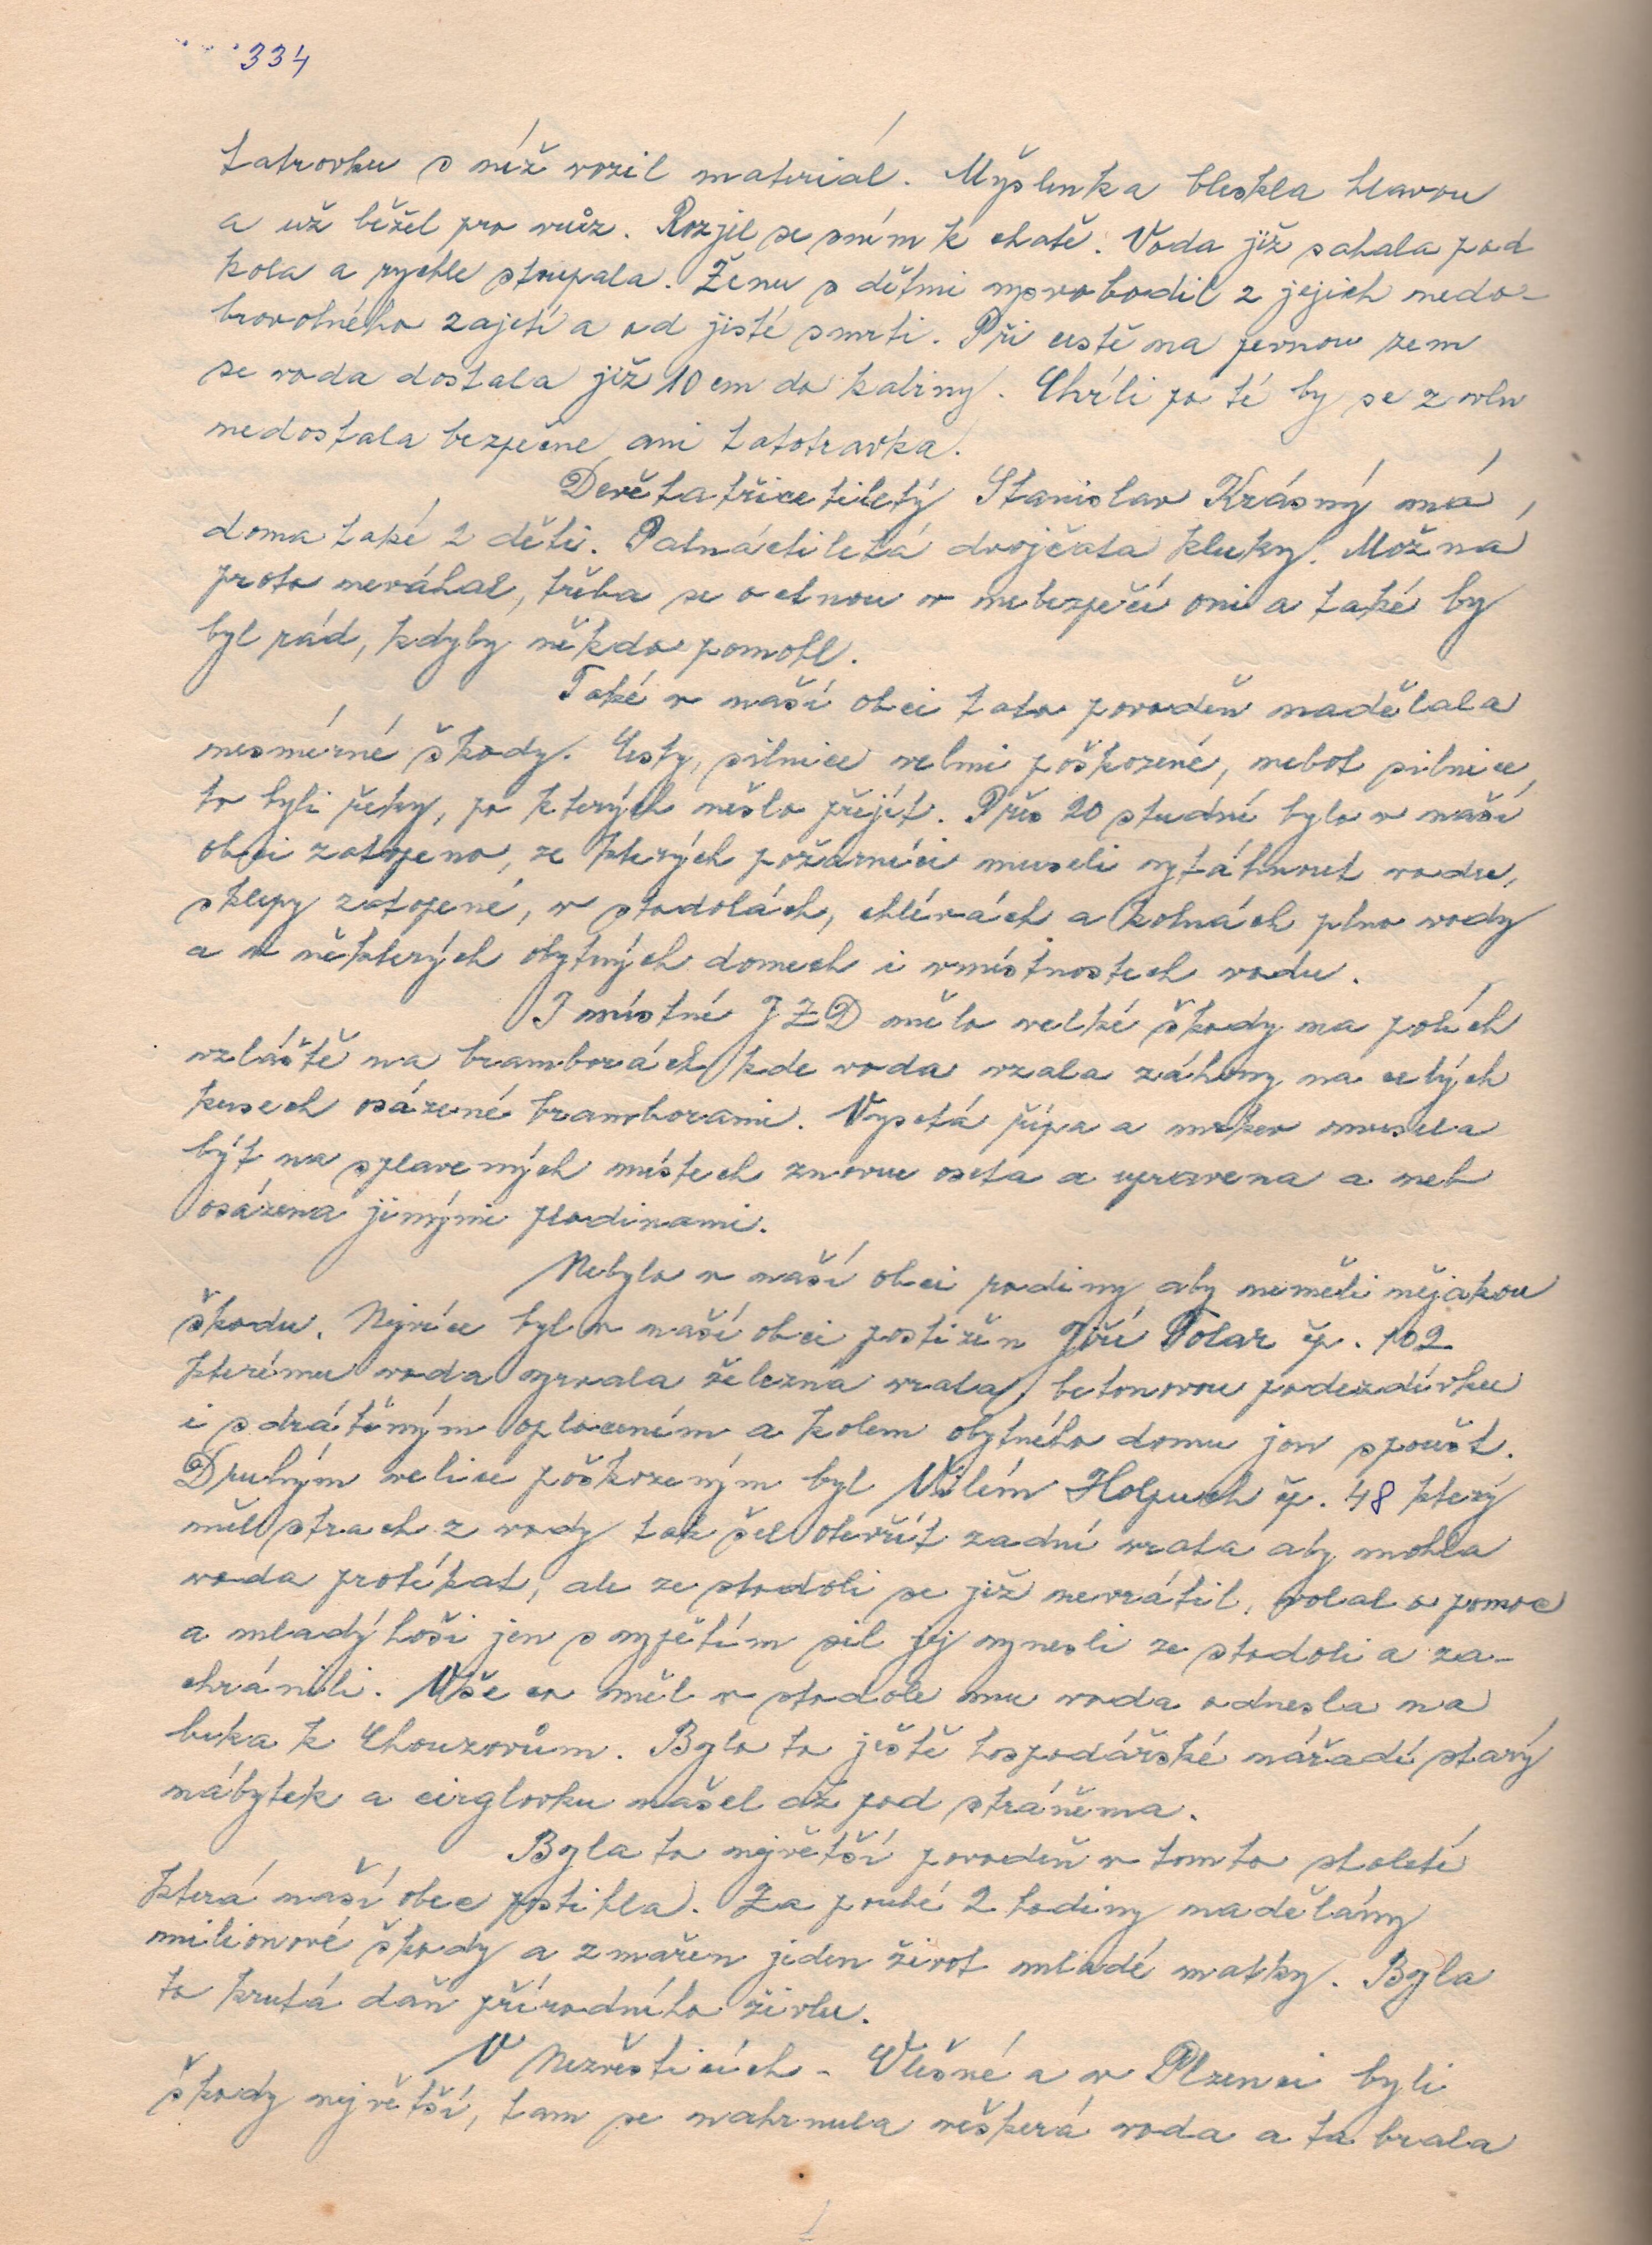 334
tatrovku s níž vozil materiál. Myšlenka bleskla hlavou
a už běžel pro vůz. Rozjel se s ním k chatě. Voda již sahala pod
kola a rychle stoupala. Ženu s dětmi vysvobodil z jejich nedo-
brovolného zajetí a od jisté smrti. Při cestě na pevnou zem
se voda dostala již 10 cm do kabiny. Chvíli po té by se z vln
nedostala bezpečne ani tatotravka.
Devětatřicetiletý Stanislav Krásný má
doma také 2 děti. Patnáctiletá dvojčata kluky. Možná
proto neváhal, třeba se octnou v nebezpečí oni a také by
byl rád, kdyby někdo pomohl.
Také v naší obci tato povodeň nadělala
nesmírné škody. Cesty, silnice velmi poškozené, nebot silnice
to byli řeky, po kterých nešlo přejít. Přes 20 studní bylo v naší
obci zatopeno, ze kterých požárníci museli vytáhnout vodu,
sklepy zatopené, v stodolách, chlévách a kolnách plno vody
a v některých obytných domech i v místnostech vodu.
I místní JZD mělo velké škody na polích
vzláště na bramborách kde voda vzala záhony na celých
kusech osázené bramborami. Vysetá řípa a mrkev musela
být na splavených místech znovu oseta a upravena a neb
osázena jinými plodinami.
Nebylo v naší obci rodiny aby neměli nějakou
škodu. Nejvíce byl v naší obci postižen Jiří Tolar čp. 102
kterému voda vyrvala železná vrata, betonovou podezdívku
i s drátěným oplocením a kolem obytného domu jen spoušt.
Druhým velice poškozeným byl Vilém Holpuch čp. 48 který
měl strach z vody tak šel otevřít zadní vrata aby mohla
voda protékat, ale ze stodoli se již nevrátil, volal o pomoc
a mladý hoši jen s vypětím sil jej vynesli ze stodoli a za-
chránili. Vše co měl v stodole mu voda odnesla na
luka k Chouzovům. Bylo to ještě hospodářské nářadí starý
nábytek a cirglovku našel až pod stráněma.
Byla to největší povodeň v tomto století
která naší obec postihla. Za pouhé 2 hodiny nadělány
milionové škody a zmařen jeden život mladé matky. Byla
to krutá daň přírodního živlu.
V Nezvěsticích - Vlešné a v Plzenci byli
škody největší, tam se nahrnula veškerá voda a ta brala